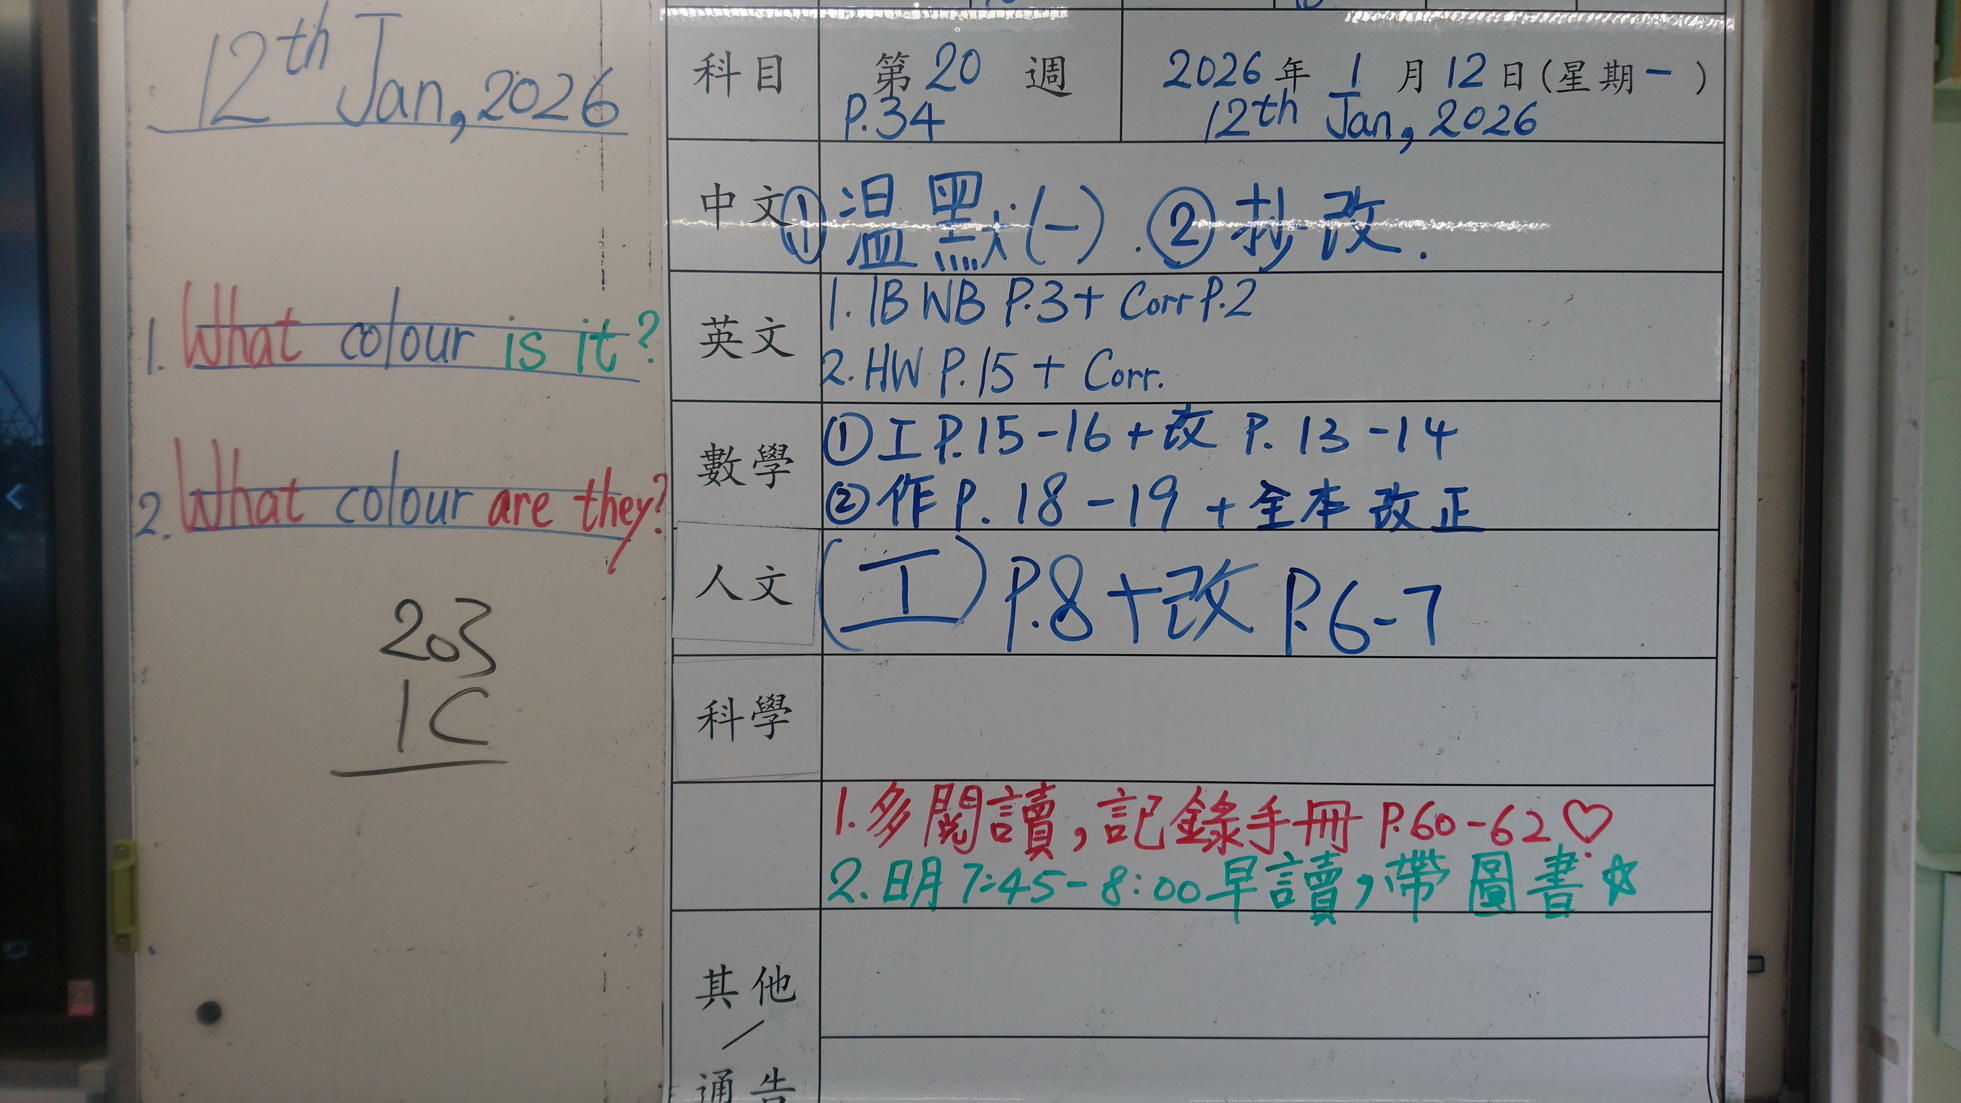 12th Jan, 2026
1. What colour is it?
2. What colour are they?
203
1C
科目 第20週 2026年1月12日(星期一)
P.34 12th Jan, 2026
中文 ①溫默(一).②抄改.
英文 1. 1B WB P.3+ Corr P.2
2. HW P.15 + Corr.
數學 ①工P.15-16+改 P. 13-14
②作P. 18-19 +全本改正
人文 (工)P.8+改 P.6-7
科學
1.多閱讀,記錄手冊 P.60-62♡
2.明 7:45-8:00早讀,帶圖書☆
其他
/
通告